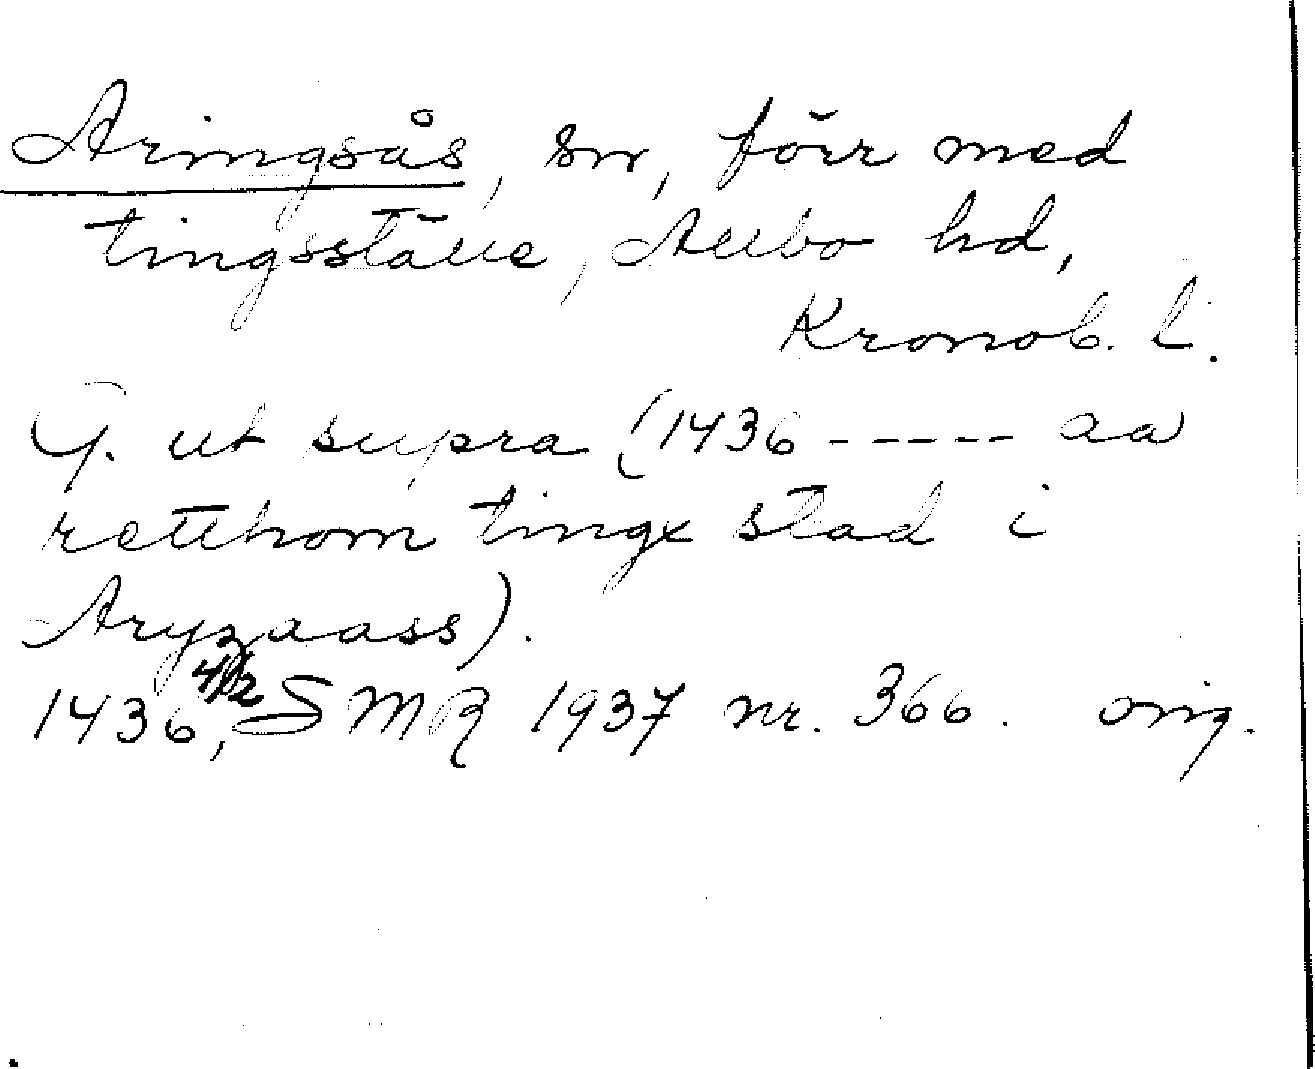 Aringsås, sn, förr med
tingsställe, Allbo hd,
Kronob. l.
G. ut supra (1436 ----- aa
retthom tingx stad i
Aryzaass).
1436, 4/2 SMR 1937 nr. 366. orig.